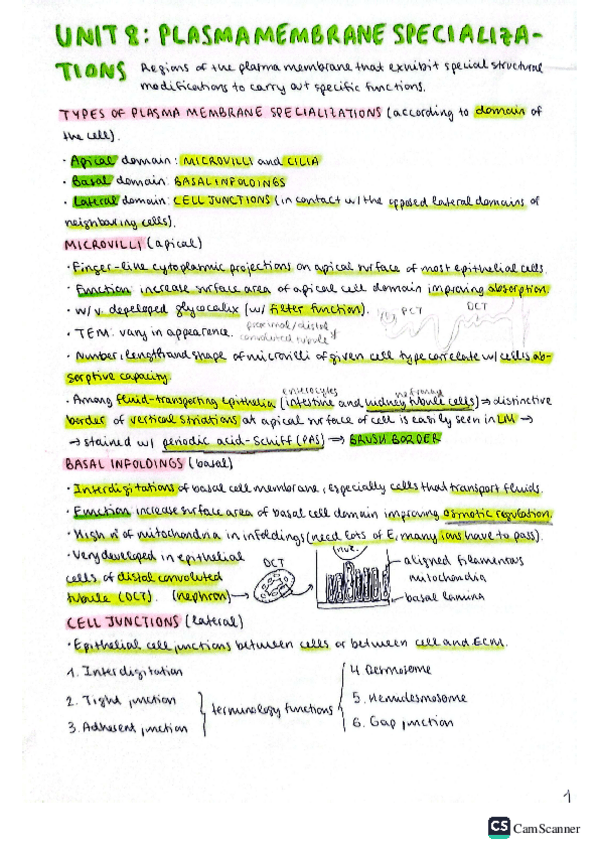 UNIT 8: PLASMA MEMBRANE SPECIALIZA-
TIONS Regions of the plasma membrane that exhibit special structural
modifications to carry out specific functions.
TYPES OF PLASMA MEMBRANE SPECIALIZATIONS (according to domain of
the cell).
· Apical domain: MICROVILLI and CILIA
· Basal domain: BASAL INFOLDINGS
· Lateral domain: CELL JUNCTIONS (in contact w/ the opposed lateral domains of
neighboring cells).
MICROVILLI (apical)
· Finger-like cytoplasmic projections on apical surface of most epithelial cells.
· Function: increase surface area of apical cell domain improving absorption.
· w/ v. developed glycocalix (w/ filter function).
PCT DCT
· TEM: vary in appearance. proximal/distal
convoluted tubule
· Number, length and shape of microvilli of given cell type correlate w/ cell's ab-
sorptive capacity.
enterocytes
· Among fluid-transporting epithelia (intestine and kidney tubule cells) ⇒ distinctive
border of vertical striations at apical surface of cell is easily seen in LM →
→ stained w/ periodic acid-Schiff (PAS) ⇒ BRUSH BORDER
BASAL INFOLDINGS (basal)
· Interdigitations of basal cell membrane, especially cells that transport fluids.
· Function: increase surface area of basal cell domain improving osmotic regulation.
· High nº of mitochondria in infoldings (need lots of E, many ions have to pass).
· Very developed in epithelial
cells of distal convoluted
tubule (DCT). (nephron) →
DCT
nuc.
aligned filamentous
mitochondria
basal lamina
CELL JUNCTIONS (lateral)
· Epithelial cell junctions between cells or between cell and ECM.
1. Interdigitation
2. Tight junction
3. Adherent junction
terminology functions
4. Desmosome
5. Hemidesmosome
6. Gap junction
1
CS CamScanner